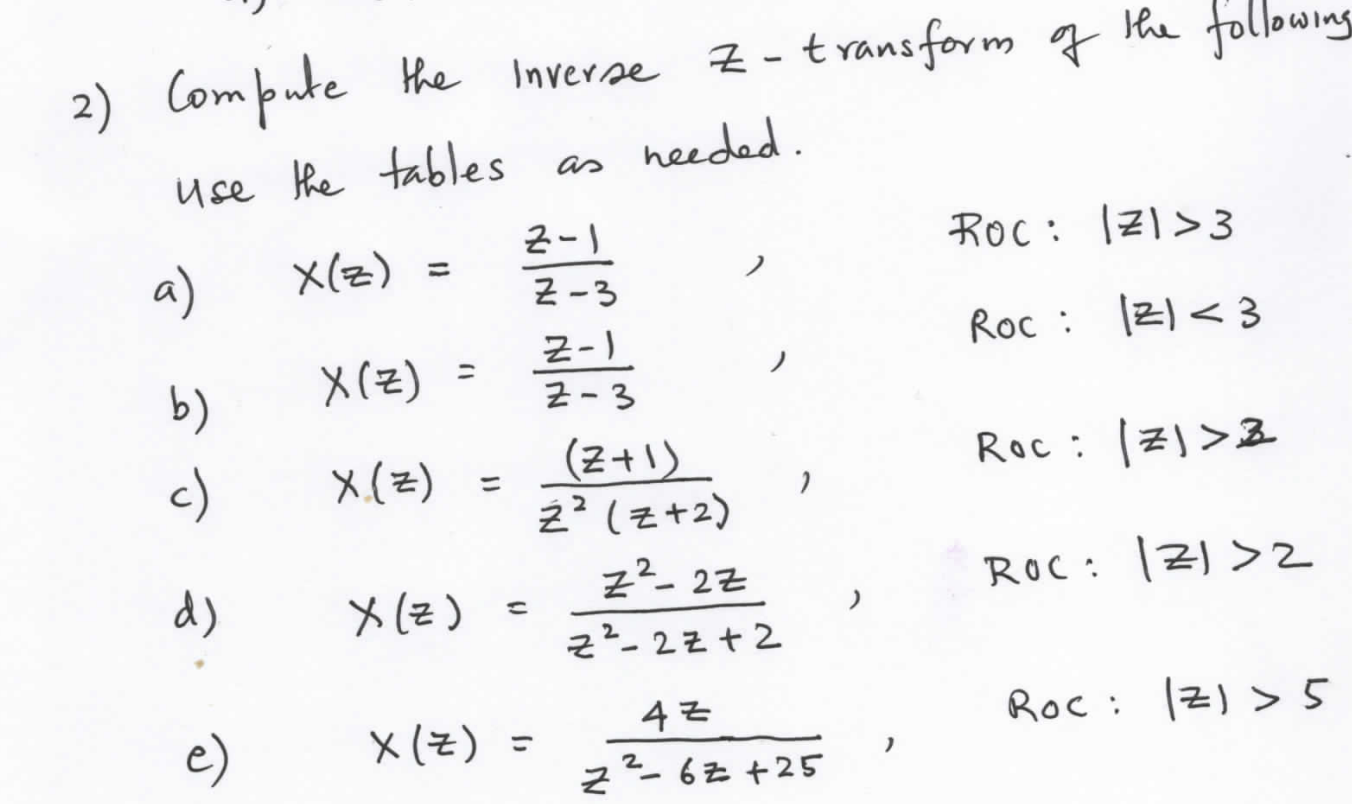 2) Compute the Inverse z-transform of the following
use the tables as needed.
a) X(z) = (z-1)/(z-3) , ROC: |z|>3
b) X(z) = (z-1)/(z-3) , ROC: |z|<3
c) X(z) = (z+1)/(z²(z+2)) , ROC: |z|>
d) X(z) = (z²-2z)/(z²-2z+2) , ROC: |z|>2
e) X(z) = 4z/(z²-6z+25) , ROC: |z|>5